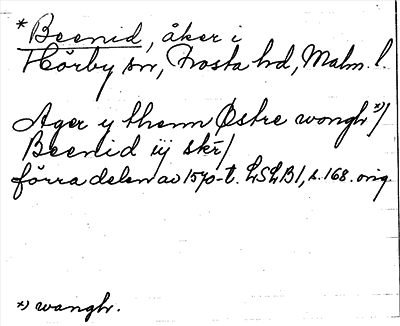 * Beenid, åker i
Hörby sn, Frosta hd, Malm. l.
Ager y thenn Østre wongh x)/
Beenid iij skr/
förra delen av 1570-t. LSLB1, s. 168. orig.
x) wangh.